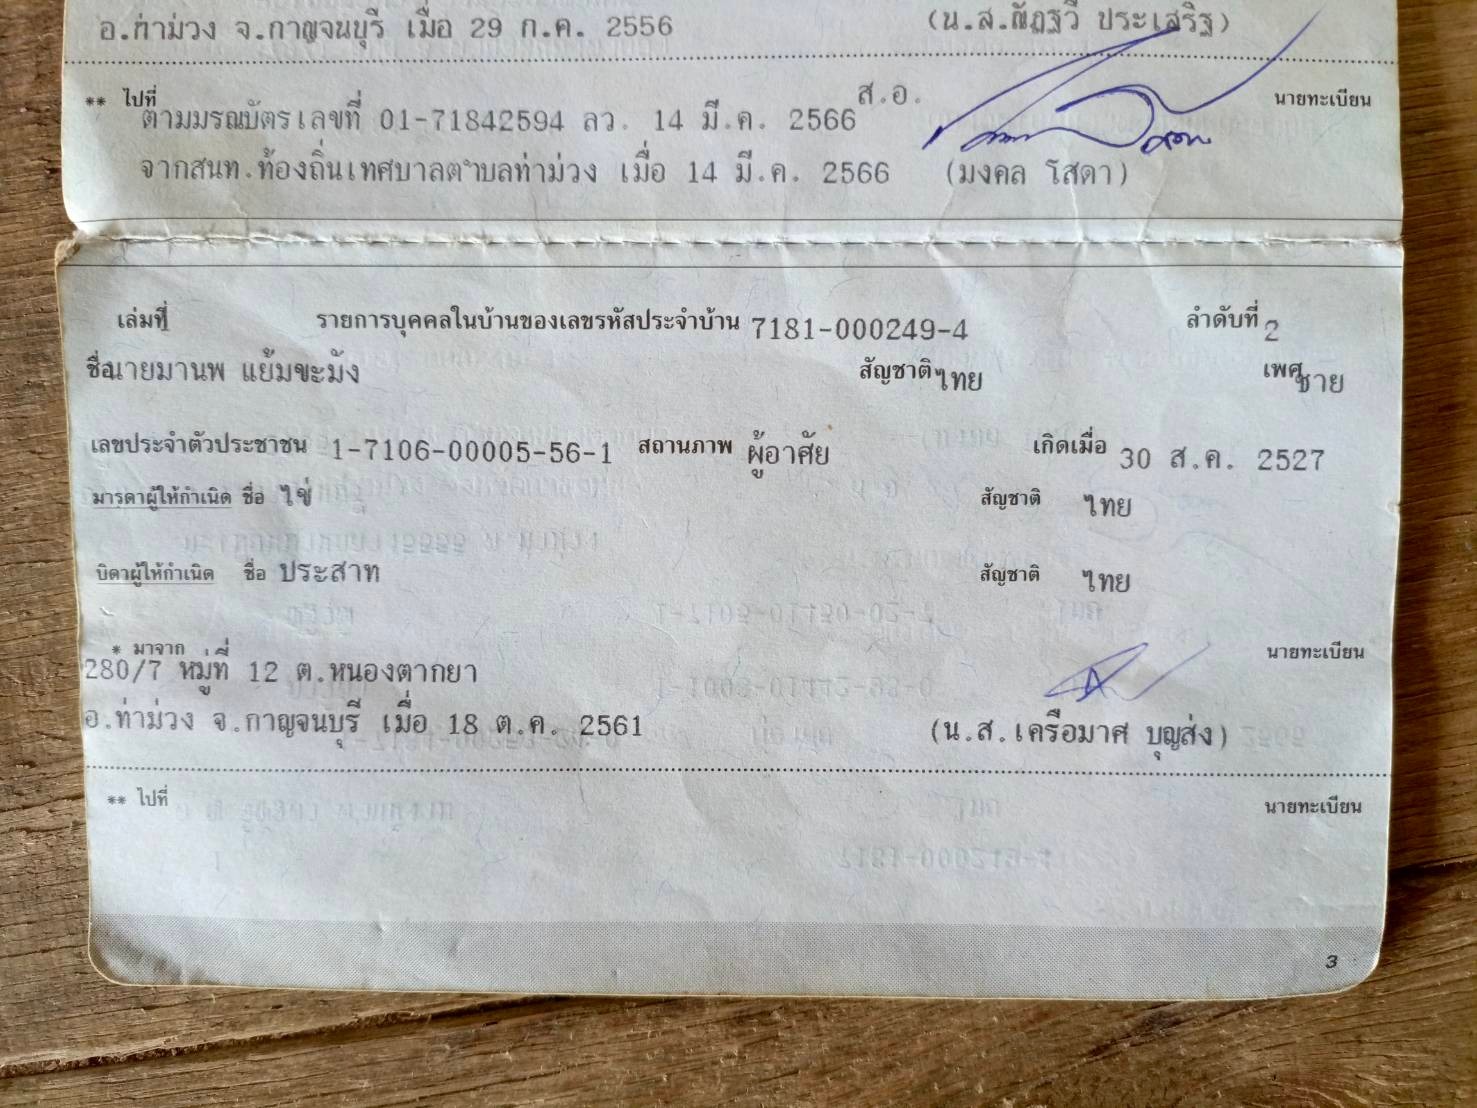 อ.ท่าม่วง จ.กาญจนบุรี เมื่อ 29 ก.ค. 2556 (น.ส.ณัฏฐวี ประเสริฐ)
** ไปที่ ส.อ. นายทะเบียน
ตามมรณบัตรเลขที่ 01-71842594 ลว. 14 มี.ค. 2566
จากสนท.ท้องถิ่นเทศบาลตำบลท่าม่วง เมื่อ 14 มี.ค. 2566 (มงคล โสดา)
เล่มที่ 1 รายการบุคคลในบ้านของเลขรหัสประจำบ้าน 7181-000249-4 ลำดับที่ 2
ชื่อ นายมานพ แย้มขะมัง สัญชาติ ไทย เพศ ชาย
เลขประจำตัวประชาชน 1-7106-00005-56-1 สถานภาพ ผู้อาศัย เกิดเมื่อ 30 ส.ค. 2527
มารดาผู้ให้กำเนิด ชื่อ ไข่ สัญชาติ ไทย
บิดาผู้ให้กำเนิด ชื่อ ประสาท สัญชาติ ไทย
* มาจาก นายทะเบียน
280/7 หมู่ที่ 12 ต.หนองตากยา
อ.ท่าม่วง จ.กาญจนบุรี เมื่อ 18 ต.ค. 2561 (น.ส.เครือมาศ บุญส่ง)
** ไปที่ นายทะเบียน
3